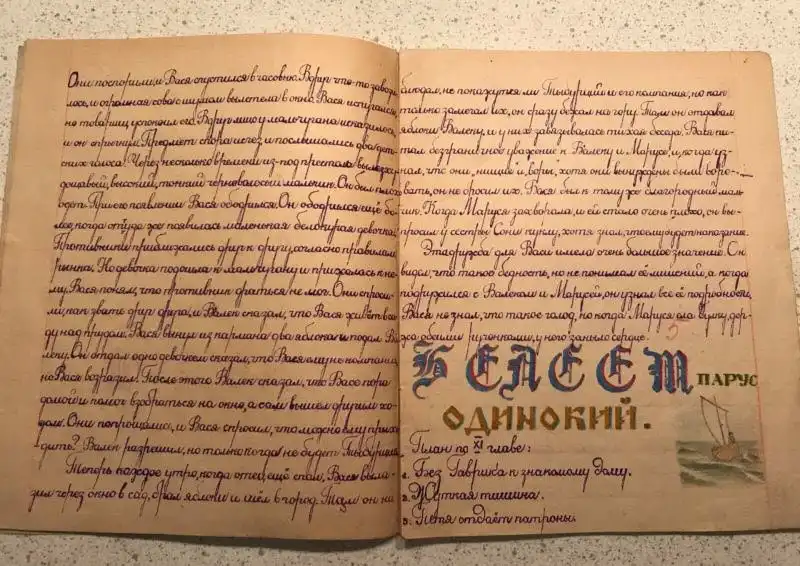 Они поспорили, и Вася спустился в часовню. Вдруг что-то завози-
лось, и огромная сова с шумом вылетела в окно. Вася испугался,
но товарищ успокоил его. Вдруг лицо у мальчугана исказилось,
и он отпрянул. Предмет скоро исчез, и послышались два дет-
ских голоса! Через несколько времени из-под престола вылез ху-
дощавый, высокий, тонкий черноволосый мальчик. Он был плохо
одет. При его появлении Вася ободрился. Он ободрился ещё бо-
лее, когда оттуда же появилась маленькая белокурая девочка.
Противники приближались друг к другу, согласно правилам
рынка. Но девочка подошла к мальчугану и прижалась к не-
му. Вася понял, что противник драться не мог. Они спроси-
ли, как звать друг друга, и Валек сказал, что Вася живёт в са-
ду над прудом. Вася вынул из кармана два яблока и подал Ва-
леку. Он отдал одно девочке и сказал, что Вася ему не компания,
но Вася возразил. После этого Валек сказал, что Васе пора
домой и помог взобраться на окно, а сам вышел другим хо-
дом. Они попрощались, и Вася спросил, что можно ему прихо-
дить? Валек разрешил, но только когда не будет Тыбурция.
Теперь каждое утро, когда отец ещё спал, Вася выле-
зал через окно в сад, брал яблоки и шёл в город. Там он на-
блюдал, не покажутся ли Тыбурций и его компания, но как
только замечал их, он сразу бежал на гору. Там он отдавал
яблоки Валеку, и у них завязывалась тихая беседа. Вася пи-
тал безграничное уважение к Валеку и Марусе, и, когда уз-
нал, что они „нищие и воры", хотя они вынуждены были воро-
вать, он не бросил их. Вася был к тому же благородный маль-
чик. Когда Маруся захворала, и ей стало очень плохо, он вы-
просил у сестры Сони куклу, хотя знал, что ему будет наказание.
Эта дружба для Васи имела очень большое значение. Он
видал, что такое бедность, но не понимал её лишений, а когда
подружился с Валеком и Марусей, он узнал все её подробности.
Вася не знал, что такое голод, но когда Маруся ела булку, дер-
жа обеими ручонками, у него заныло сердце.
5
БЕЛЕЕТ ПАРУС
ОДИНОКИЙ.
План по XI главе:
1. Без Гаврика к знакомому дому.
2. Жуткая тишина.
3. Петя отдаёт патроны.